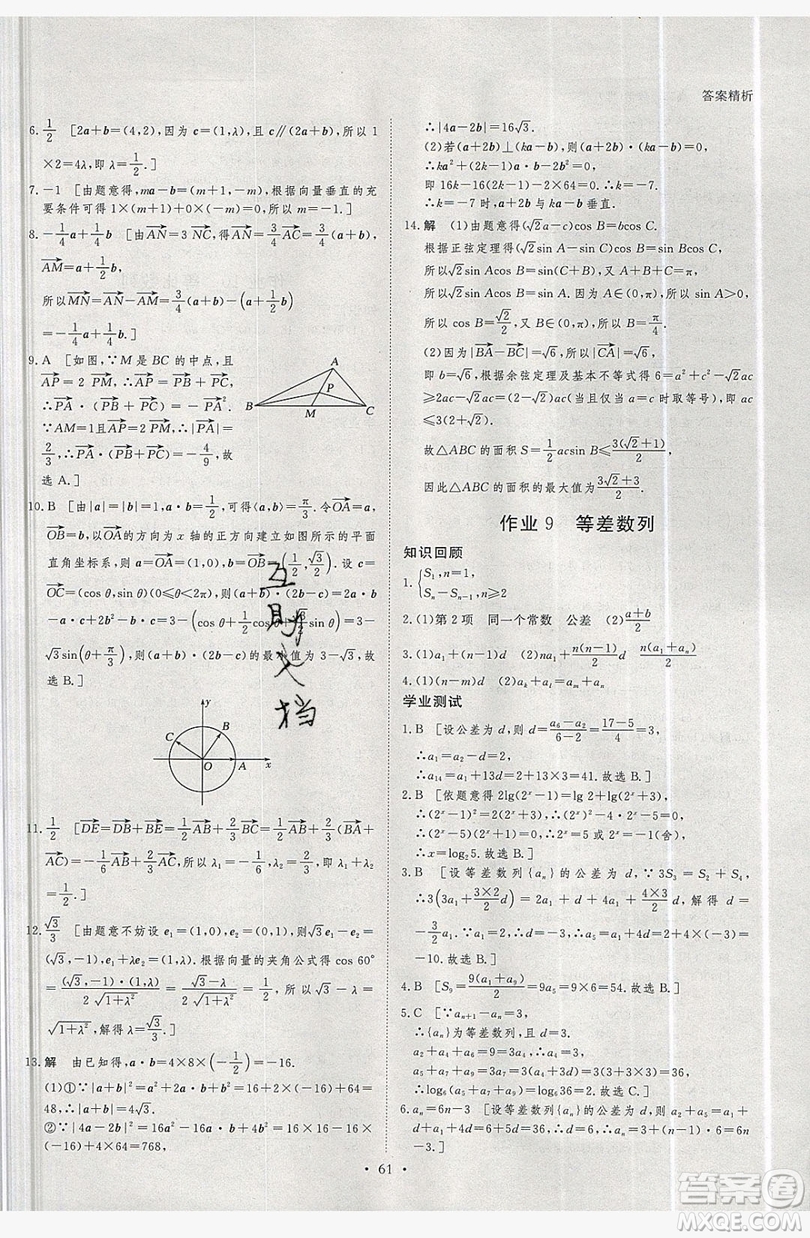 答案精析
6. 1/2 [2a+b=(4,2),因为 c=(1,λ),且 c∥(2a+b),所以 1
×2=4λ,即 λ=1/2.]
7.-1 [由题意得,ma-b=(m+1,-m),根据向量垂直的充
要条件可得 1×(m+1)+0×(-m)=0,所以 m=-1.]
8.-1/4 a+1/4 b [由AN=3 NC,得AN=3/4 AC=3/4(a+b),
AM=a+1/2 b,
所以MN=AN-AM=3/4(a+b)-(a+1/2 b)
=-1/4 a+1/4 b.]
9. A [如图,∵M 是 BC 的中点,且
AP=2 PM,
∴PA·(PB+PC)=-PA².
∵AM=1且AP=2 PM,∴|PA|=2/3,
∴PA·(PB+PC)=-4/9,故
选 A.]
A
P
B M C
10. B [由|a|=|b|=1,a·b=1/2,可得⟨a,b⟩=π/3. 令OA=a,
OB=b,以OA的方向为 x 轴的正方向建立如图所示的平面
直角坐标系,则a=OA=(1,0),b=OB=(1/2,√3/2). 设 c=
OC=(cos θ,sin θ)(0≤θ<2π),则(a+c)·(b-2c)=2a·
b-a·c+b·c-2c²=3-(cos θ+√3 sin θ)=3-
√3sin(θ+π/3),则(a+c)·(b-2c)的最小值为 3-√3,故
选 B.]
y
C B
O A x
11. 1/2 [DE=DB+BE=1/2 AB+2/3 BC=1/2 AB+2/3(BA+
AC)=-1/6 AB+2/3 AC,所以 λ₁=-1/6,λ₂=2/3,即 λ₁+λ₂=
1/2.]
12. √3/3 [由题意不妨设 e₁=(1,0),e₂=(0,1),所以√3e₁-e₂=
(√3,-1),e₁+λe₂=(1,λ). 根据向量的夹角公式得 cos 60°
=(√3,-1)·(1,λ)/(2√(1+λ²))=(√3-λ)/(2√(1+λ²))=1/2,所以√3-λ=
√(1+λ²),解得 λ=√3/3.]
13. 解 由已知得,a·b=4×8×(-1/2)=-16.
(1)①∵|a+b|²=a²+2a·b+b²=16+2×(-16)+64=
48,∴|a+b|=4√3.
②∵|4a-2b|²=16a²-16a·b+4b²=16×16-16×
(-16)+4×64=768,
∴|4a-2b|=16√3.
(2)若(a+2b)⊥(ka-b),则(a+2b)·(ka-b)=0,
∴ka²+(2k-1)a·b-2b²=0,
即 16k-16(2k-1)-2×64=0,∴k=-7.
即 k=-7时,a+2b与 ka-b 垂直.
14. 解 (1)由题意得(√2a-c)cos B=bcos C.
根据正弦定理得(√2sin A-sin C)cos B=sin Bcos C,
所以√2sin Acos B=sin(C+B),又 A+B+C=π,
即√2sin Acos B=sin A. 因为 A∈(0,π),所以 sin A>0,
所以 cos B=√2/2,又 B∈(0,π),所以 B=π/4.
(2)因为|BA-BC|=√6,所以|CA|=√6,
即 b=√6,根据余弦定理及基本不等式得 6=a²+c²-√2ac
≥2ac-√2ac=(2-√2)ac(当且仅当 a=c 时取等号),即 ac
≤3(2+√2).
故△ABC 的面积 S=1/2 acsin B≤3(√2+1)/2,
因此△ABC 的面积的最大值为 (3√2+3)/2.
作业 9 等差数列
知识回顾
1. {S₁,n=1,
Sₙ-Sₙ₋₁,n≥2
2.(1)第 2 项 同一个常数 公差 (2)(a+b)/2
3.(1)a₁+(n-1)d (2)na₁+n(n-1)/2 d n(a₁+aₙ)/2
4.(1)(n-m)d (2)aₖ+aₗ=aₘ+aₙ
学业测试
1. B [设公差为 d,则 d=(a₆-a₂)/(6-2)=(17-5)/4=3,
∴a₁=a₂-d=2,
∴a₁₄=a₁+13d=2+13×3=41. 故选 B.]
2. B [依题意得 2lg(2ˣ-1)=lg 2+lg(2ˣ+5),
∴(2ˣ-1)²=2(2ˣ+5),∴(2ˣ)²-4·2ˣ-5=0,
∴(2ˣ-5)(2ˣ+1)=0,∴2ˣ=5 或 2ˣ=-1(舍),
∴x=log₂5. 故选 B.]
3. B [设等差数列{aₙ}的公差为 d,∵3S₃=S₂+S₄,
∴3(3a₁+(3×2)/2 d)=2a₁+d+4a₁+(4×3)/2 d,解得 d=
-3/2 a₁,∵a₁=2,∴d=-3,∴a₅=a₁+4d=2+4×(-3)=
-10. 故选 B.]
4. B [S₉=9(a₁+a₉)/2=9a₅=9×6=54. 故选 B.]
5. C [∵aₙ₊₁-aₙ=3,
∴{aₙ}为等差数列,且 d=3.
a₂+a₄+a₆=9=3a₄,∴a₄=3,
a₅+a₇+a₉=3a₇=3(a₄+3d)=3(3+3×3)=36,
∴log₆(a₅+a₇+a₉)=log₆36=2. 故选 C.]
6. aₙ=6n-3 [设等差数列{aₙ}的公差为 d,∵a₁=3,a₂+a₅
=36,∴2a₁+5d=6+5d=36,∴d=6,∴aₙ=3+(n-1)·6=6n
-3.]
• 61 •
答案圈
MXQE.COM